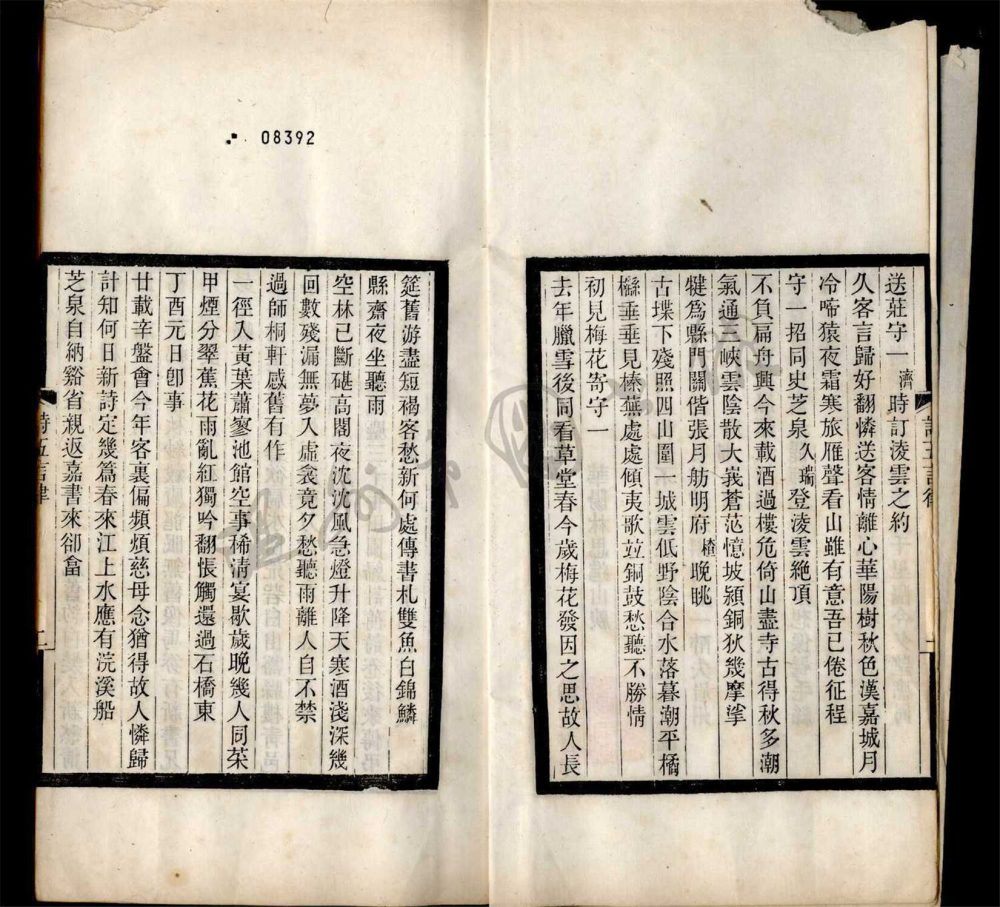 送莊守一濟時訂淩雲之約
久客言歸好翻憐送客情離心華陽樹秋色漢嘉城月
冷啼猿夜霜寒旅雁聲看山雖有意吾已倦征程
守一招同史芝泉久瑞登淩雲絕頂
不負扁舟興今來載酒過樓危倚山盡寺古得秋多潮
氣通三峽雲陰散大峩蒼茫憶坡潁銅狄幾摩挲
犍爲縣門關偕張月舫明府楂晚眺
古堞下殘照四山圍一城雲低野陰合水落暮潮平橘
櫾垂垂見榛蕪處處傾夷歌竝銅鼓愁聽不勝情
初見梅花寄守一
去年臘雪後同看草堂春今歲梅花發因之思故人長
詩五言律
筵舊游盡短褐客愁新何處傳書札雙魚白錦鱗
縣齋夜坐聽雨
空林已斷碪高閣夜沈沈風急燈升降天寒酒淺深幾
回數殘漏無夢入虛衾竟夕愁聽雨離人自不禁
過師桐軒感舊有作
一徑入黃葉蕭寥池館空事稀清宴歇歲晚幾人同茶
甲煙分翠蕉花雨亂紅獨吟翻悵觸還過石橋東
丁酉元日卽事
廿載辛盤會今年客裏偏頻煩慈母念猶得故人憐歸
計知何日新詩定幾篇春來江上水應有浣溪船
芝泉自納谿省親返嘉書來卻畣
詩五言律
二
08392